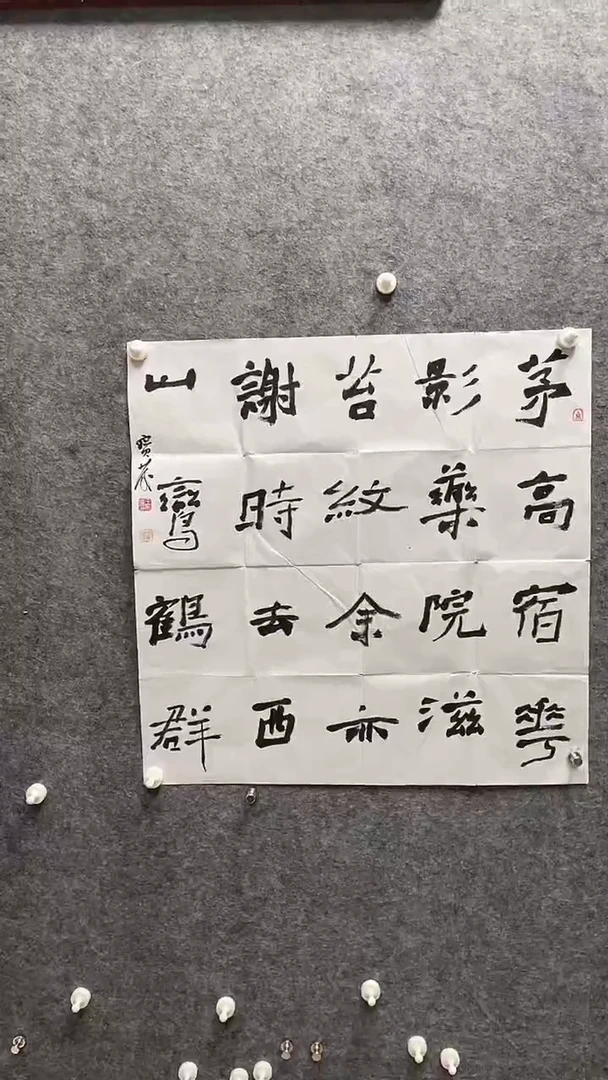 茅高宿華
影藥院滋
苔紋余亦
謝時去西
山鸞鶴群